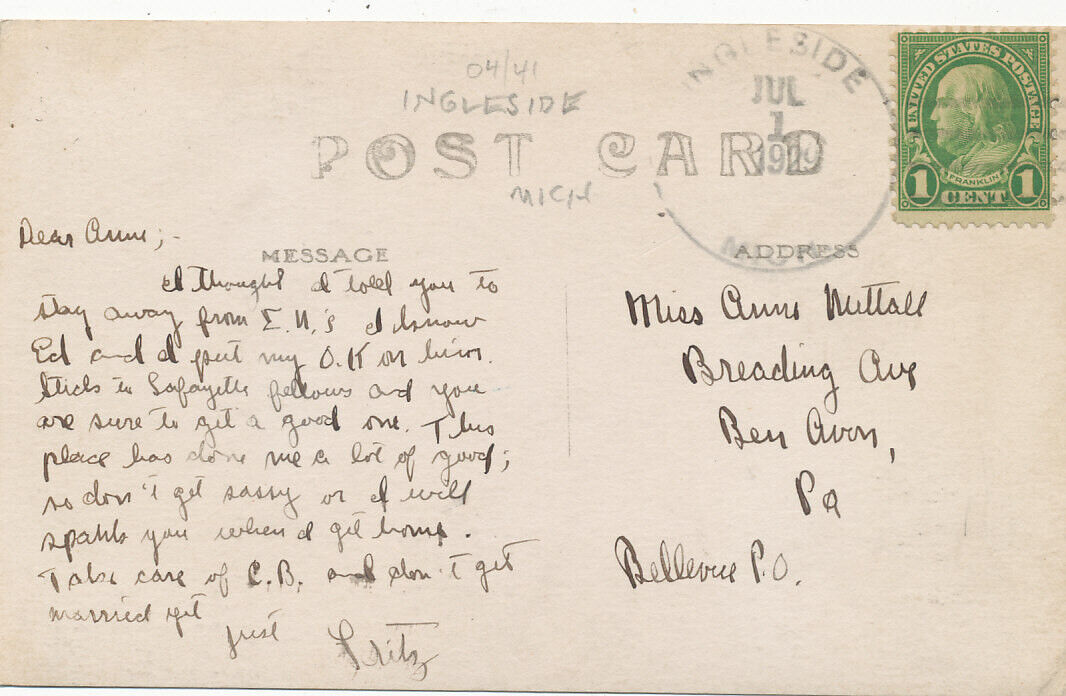 04/41
INGLESIDE
POST CARD
MICH
INGLESIDE
JUL
1
1929
MICH
UNITED STATES POSTAGE
FRANKLIN
1 CENT 1
Dear Anne;-
MESSAGE
I thought I told you to
stay away from Σ.N.'s I know
Ed and I put my O.K on him.
Stick to Lafayette fellows and you
are sure to get a good one. This
place has done me a lot of good;
so don't get sassy or I will
spank you when I get home.
Take care of C.B. and don't get
married yet
just Fritz
ADDRESS
Miss Anne Nuttall
Breading Ave
Ben Avon,
Pa
Bellevue P.O.